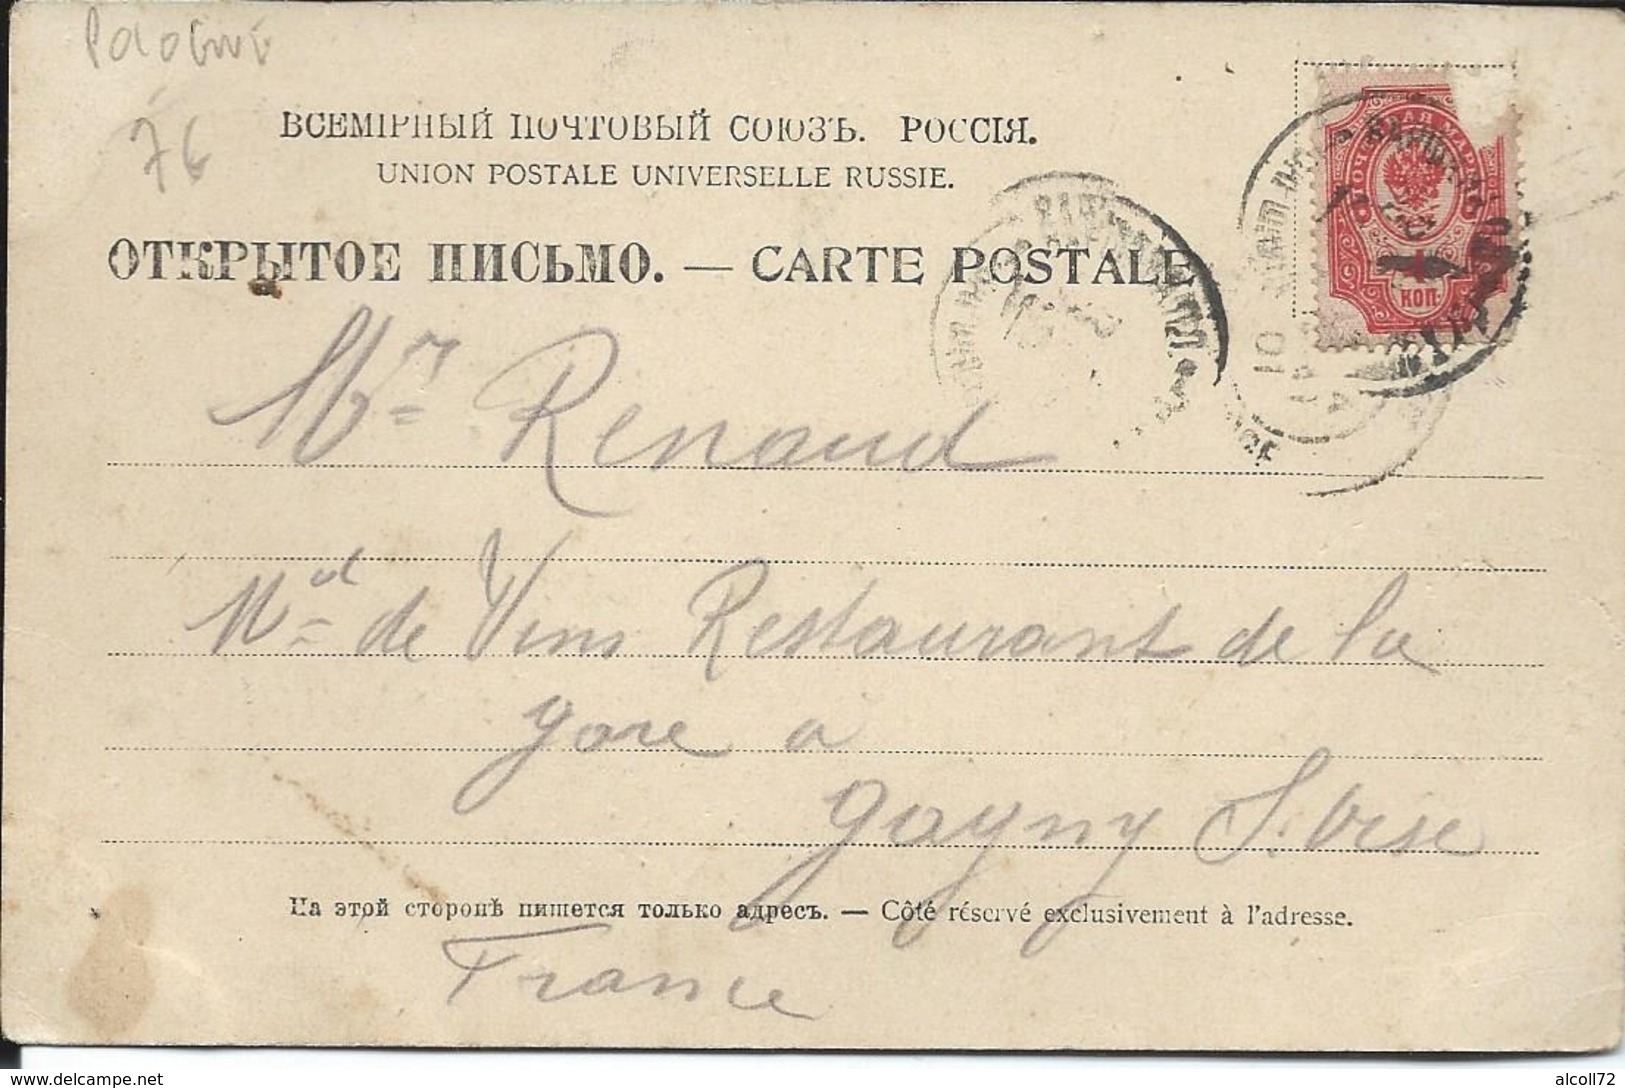 Pologne
76
ВСЕМІРНЫЙ ПОЧТОВЫЙ СОЮЗЪ. РОССІЯ.
UNION POSTALE UNIVERSELLE RUSSIE.
ОТКРЫТОЕ ПИСЬМО. — CARTE POSTALE
ПОЧТОВАЯ МАРКА
4
КОП.
Mr Renaud
Md de Vins Restaurant de la
gare a
Gagny S. Oise
На этой сторонѣ пишется только адресъ. — Côté réservé exclusivement à l'adresse.
France
alcoll72